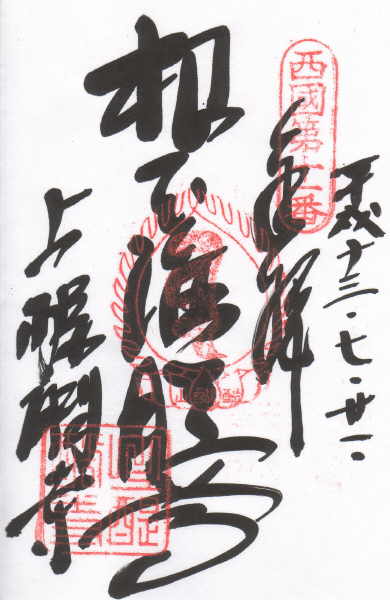 西國第十一番
平成十三・七・廿一
奉拝
根本准胝尊
上醍醐寺